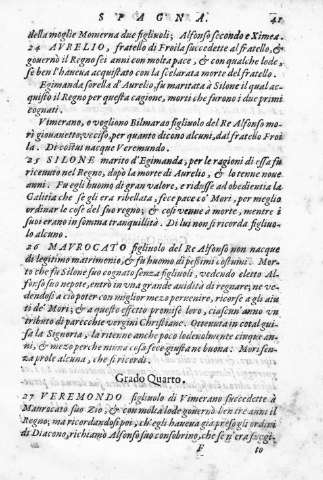 SPAGNA. 41
della moglie Momerna due figliuoli; Alfonso secondo e Ximea.
24 AVRELIO, fratello di Froila succedette al fratello, &
governò il Regno sei anni con molta pace, & con qualche lode,
se ben l'haueua acquistato con la scelarata morte del fratello.
Egimanda sorella d'Aurelio, fu maritata à Silone il qual ac-
quisto il Regno per questa cagione, morti che furono i due primi
cognati.
Vimerano, o vogliono Bilmarao figliuolo del Re Alfonso mo-
rì giouanetto, vcciso, per quanto dicono alcuni, dal fratello Froi
la. Di costui nacque Veremundo.
25 SILONE marito d'Egimanda, per le ragioni di essa fu
riceuuto nel Regno, dopo la morte di Aurelio, & lo tenne noue
anni. Fu egli huomo di gran valore, e ridusse ad obedientia la
Galitia che se gli era ribellata, fece pace co' Mori, per meglio
ordinar le cose del suo regno; & così venne à morte, mentre i
suoi erano in somma tranquillità. Di lui non si ricorda figliuo-
lo alcuno.
26 MAVROCATO figliuolo del Re Alfonso non nacque
di legitimo matrimonio, & fu huomo di pessimi costumi. Mor-
to che fu Silone suo cognato senza figliuoli, vedendo eletto Al-
fonso suo nepote, entrò in vna grande auidità di regnare, ne ve-
dendosi a ciò poter con miglior mezo peruenire, ricorse a gli aiu
ti de' Mori, & a questo effetto promise loro, ciascun' anno vn
tributo di parecchie vergini Christiane. Ottenuta in cotal gui-
sa la Signoria, la ritenne anche poco lodeuolmente cinque an-
ni, & mezo perche niuna cosa fece giusta ne buona. Morì sen-
za prole alcuna, che si ricordi.
Grado Quarto.
27 VEREMONDO figliuolo di Vimerano succedette à
Maurocato suo Zio, & con molta lode gouernò ben tre anni il
Regno, ma ricordandosi poi, ch'egli haueua già preso gli ordini
di Diacono, richiamò Alfonso suo consobrino, che se n'era fuggi-
F to